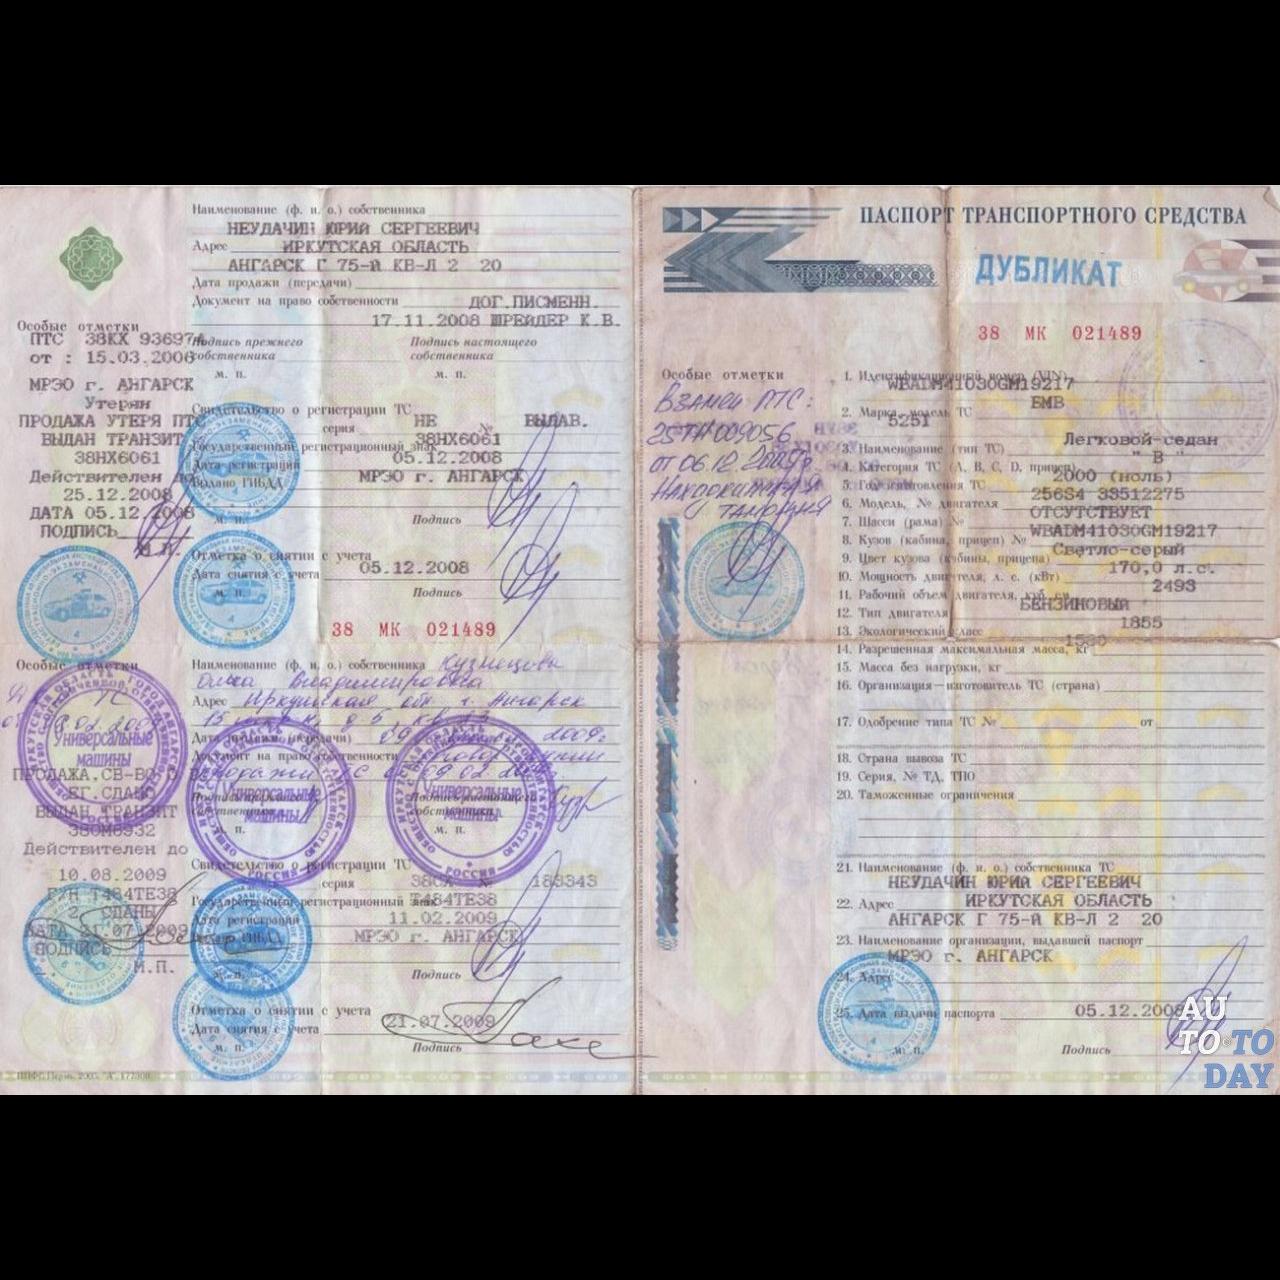 Наименование (ф. и. о.) собственника
НЕУДАЧИН ЮРИЙ СЕРГЕЕВИЧ
Адрес ИРКУТСКАЯ ОБЛАСТЬ
АНГАРСК Г 75-Й КВ-Л 2 20
Дата продажи (передачи)
Документ на право собственности ДОГ.ПИСМЕНН.
17.11.2008 ШРЕЙДЕР К.В.
Подпись прежнего собственника
Подпись настоящего собственника
м. п. м. п.
Свидетельство о регистрации ТС
серия НЕ № ВЫДАВ.
Государственный регистрационный знак 38НХ6061
Дата регистрации 05.12.2008
Выдано ГИБДД МРЭО г. АНГАРСК
м. п. Подпись
Отметка о снятии с учета
Дата снятия с учета 05.12.2008
м. п. Подпись
Особые отметки
ПТС 38КХ 936974
от : 15.03.2006
МРЭО г. АНГАРСК
Утерян
ПРОДАЖА УТЕРЯ ПТС
ВЫДАН ТРАНЗИТ
38НХ6061
Действителен до
25.12.2008
ДАТА 05.12.2008
ПОДПИСЬ
М.П.
38 МК 021489
Особые отметки
Универсальные машины
ПРОДАЖА.СВ-ВО О
ЕГ.СДАНО
ВЫДАН ТРАНЗИТ
Действителен до
10.08.2009
Т484ТЕ38
2 СДАНЫ
ДАТА 21.07.2009
ПОДПИСЬ
М.П.
Наименование (ф. и. о.) собственника Кузнецова
Ольга Владимировна
Адрес Иркутская обл. г. Ангарск
Дата продажи (передачи) 2009г
Документ на право собственности
09.02.
Подпись прежнего собственника
Подпись настоящего собственника
Универсальные машины
Универсальные машины
м. п. м. п.
РОССИЯ
Свидетельство о регистрации ТС
серия 38СХ № 183343
Государственный регистрационный знак Т484ТЕ38
Дата регистрации 11.02.2009
Выдано ГИБДД МРЭО г. АНГАРСК
м. п. Подпись
Отметка о снятии с учета
Дата снятия с учета 21.07.2009
м. п. Подпись
ПАСПОРТ ТРАНСПОРТНОГО СРЕДСТВА
ДУБЛИКАТ
38 МК 021489
Особые отметки
Взамен ПТС:
25ТН009056
от 06.12.2005г
Находкинская
таможня
1. Идентификационный номер (VIN)
WBADM41030GM19217
2. Марка, модель ТС БМВ
525I
3. Наименование (тип ТС) Легковой-седан
4. Категория ТС (A, B, C, D, прицеп) " В "
5. Год изготовления ТС 2000 (ноль)
6. Модель, № двигателя 256S4 33512275
7. Шасси (рама) № ОТСУТСТВУЕТ
8. Кузов (кабина, прицеп) № WBADM41030GM19217
9. Цвет кузова (кабины, прицепа) Светло-серый
10. Мощность двигателя, л. с. (кВт) 170,0 л.с.
11. Рабочий объем двигателя, куб. см 2493
12. Тип двигателя БЕНЗИНОВЫЙ
13. Экологический класс
14. Разрешенная максимальная масса, кг 1855
15. Масса без нагрузки, кг
16. Организация—изготовитель ТС (страна)
17. Одобрение типа ТС № от
18. Страна вывоза ТС
19. Серия, № ТД, ТПО
20. Таможенные ограничения
21. Наименование (ф. и. о.) собственника ТС
НЕУДАЧИН ЮРИЙ СЕРГЕЕВИЧ
22. Адрес ИРКУТСКАЯ ОБЛАСТЬ
АНГАРСК Г 75-Й КВ-Л 2 20
23. Наименование организации, выдавшей паспорт
МРЭО г. АНГАРСК
24. Адрес
25. Дата выдачи паспорта 05.12.2008
м. п. Подпись
AUTO TODAY